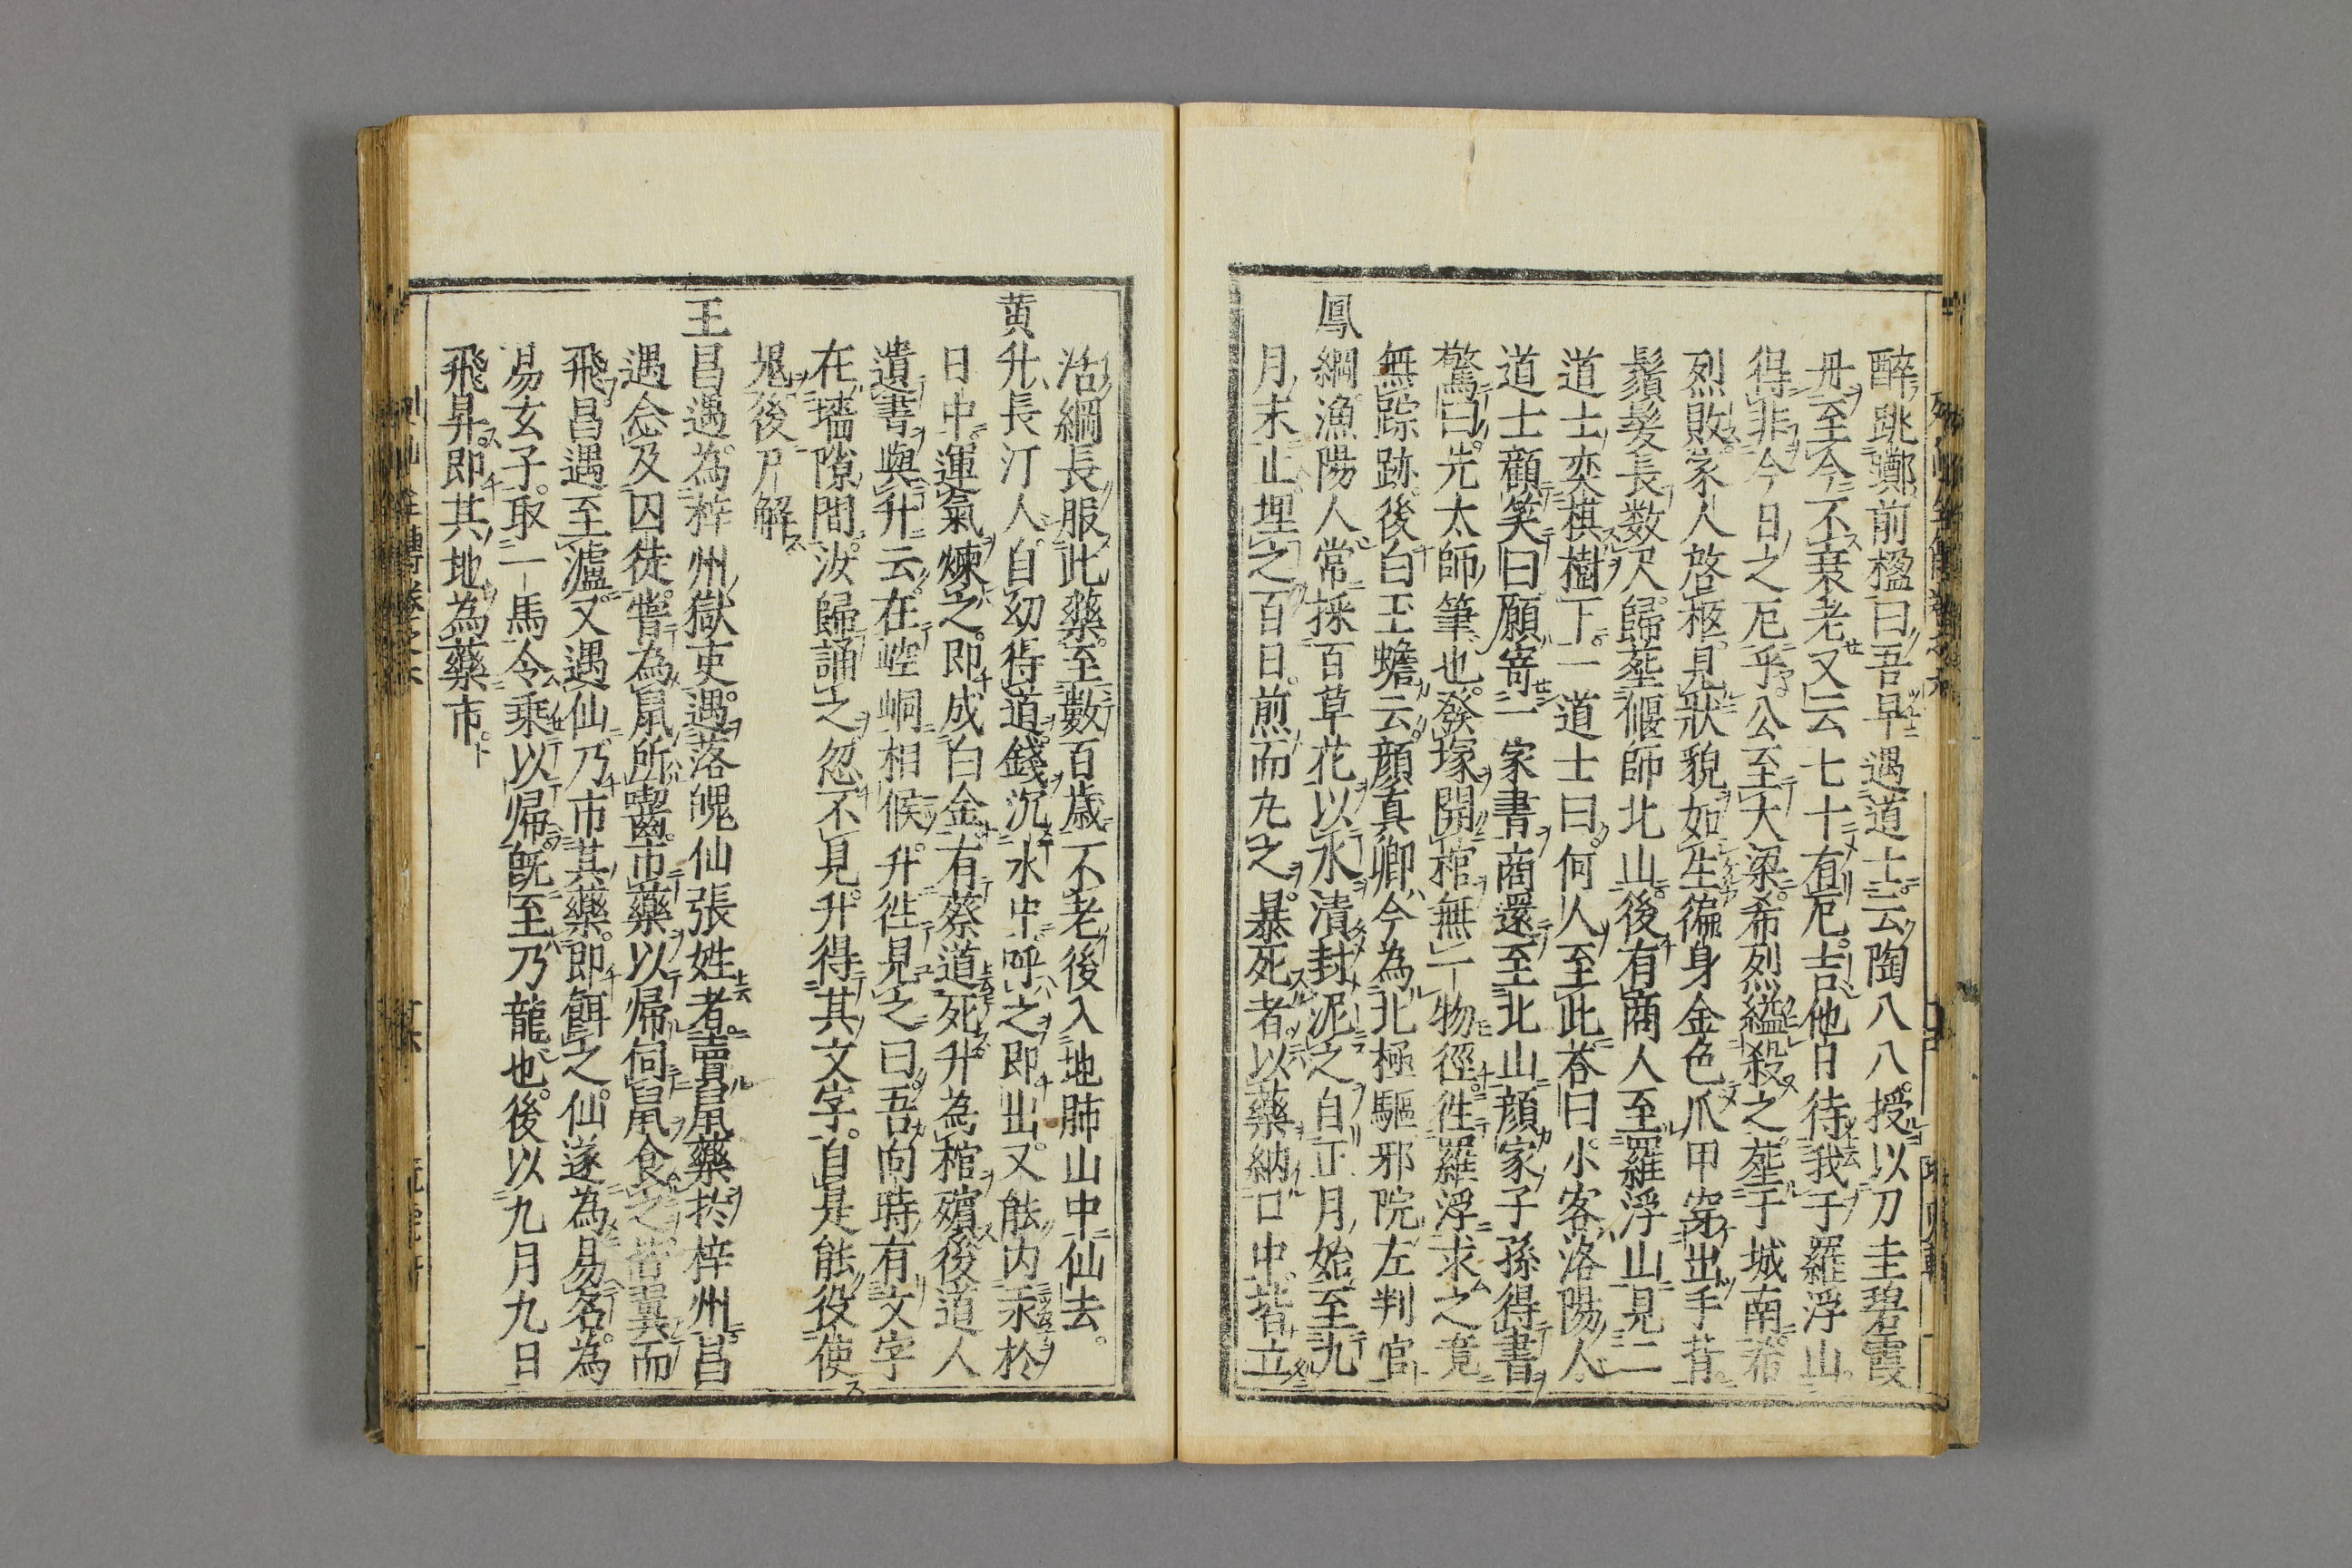 醉跳躑前楹曰吾早遇道士云陶八八授以刀圭碧霞
丹至今不衰老又云七十有厄吉他日待我于羅浮山
得非今日之厄乎公至大梁希烈縊殺之塟于城南希
烈敗家人啓柩見狀貌如生徧身金色爪甲穿出手背
鬚髮長数尺歸塟偃師北山後有商人至羅浮山見二
道士奕棋樹下一道士曰何人至此荅曰小客洛陽人
道士顧笑曰願寄一家書商還至北山顔家子孫得書
驚曰先太師筆也發塚開棺無一物徑徃羅浮求之竟
無踪跡後白玉蟾云顔真卿今為北極驅邪院左判官
鳳綱漁陽人常採百草花以水漬封泥之自正月始至九
月末止埋之百日煎而丸之暴死者以藥納口中皆立
活綱長服此藥至數百歳不老後入地肺山中仙去
黄升長汀人自幼得道錢沉水中呼之即出又能内汞於
日中運氣煉之即成白金有蔡道死升為棺殯後道人
遺書與升云在崆峒相候升徃見之曰吾向時有文字
在墻隙間汝歸誦之忽不見升得其文字自是能役使
鬼後尸解
王昌遇為梓州獄吏遇落魄仙張姓者賣鼠藥於梓州昌
遇念及囚徒嘗為鼠所齧市藥以帰伺鼠食之皆翼而
飛昌遇至瀘又遇仙乃市其藥即餌之仙遂為易名為
易玄子取一馬令乘以帰旣至乃龍也後以九月九日
飛昇即其地為藥市